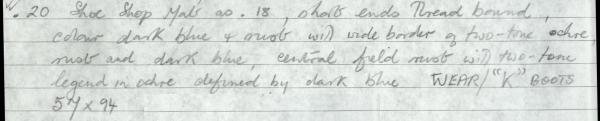 . 20 Shoe Shop Mat as . 18, short ends Thread bound,
colour dark blue & rust with wide border of two-tone ochre,
rust and dark blue, central field rust with two-tone
legend in ochre defined by dark blue WEAR/"K" BOOTS
57 x 94